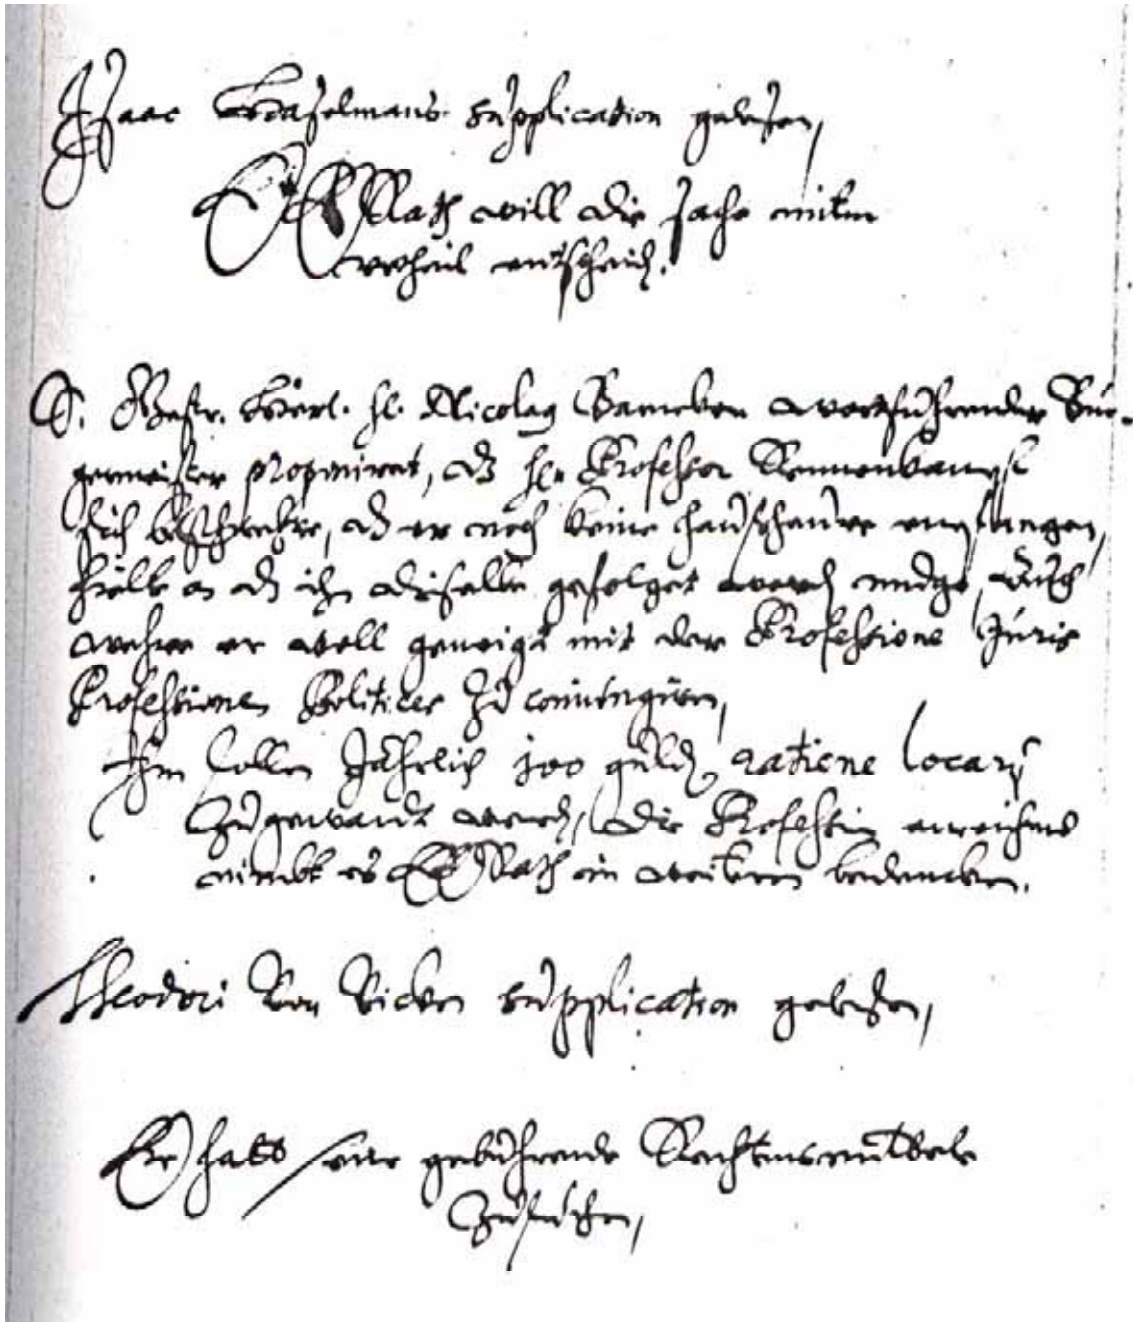 Isaac supplication gelesen,
E E Rath will die sache mitm
urtheil entscheid.
S. Gestr. Herl. hl. Nicolaq Barneken wortführender Bür-
germeister proponiret, dz hl. Professor Rennenkampf
sich beschwehre, dz er noch keine haußheure empfangen,
hielte an dz ihm dieselbe gefolget werd müge, Auch
wehre er woll geneigt mit der Professione Juris
Professionem Politices zu coniungiren,
Ihm sollen Jährlich 100 güld. ratione locarij
zugewandt werd, die Profession anreichend
nimbt es E E Rath in weitern bedencken.
Theodori Von Vicken supplication gelesen,
Er hatt seine gebührende Rechtensmittele
Zusuchen,